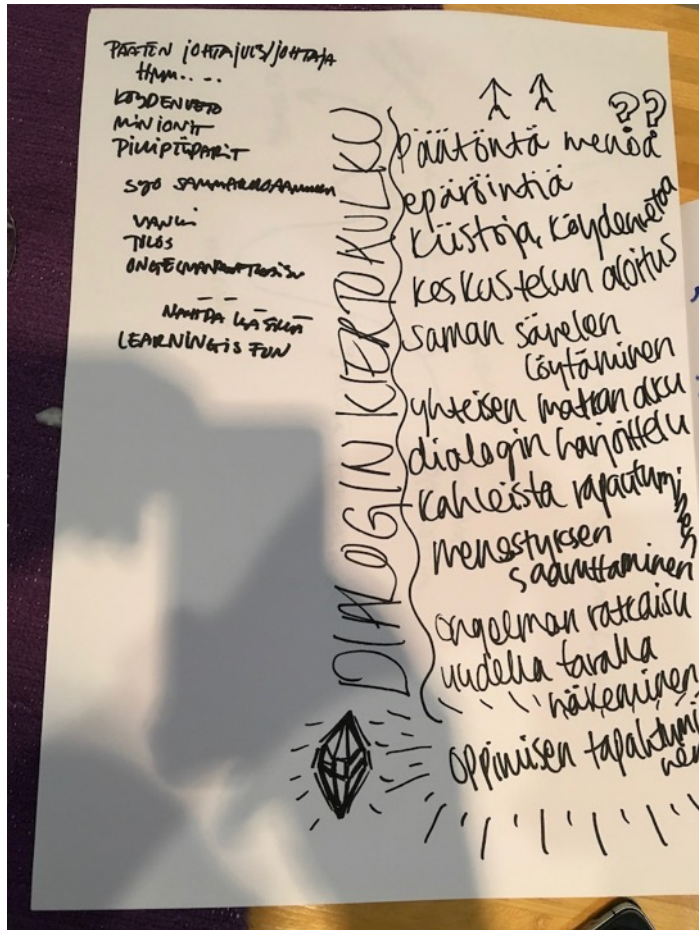 HMM....
KÖYDENVETO
MINIONIT
VANKI
TULOS
NÄHDÄ
LEARNING IS FUN
DIALOGIN KIERTOKULKU
??
päätöntä menoa
epäröintiä
kiistoja, köydenvetoa
keskustelun aloitus
saman sävelen
löytäminen
yhteisen matkan alku
dialogin harjoittelu
kahleista vapautuminen
menestyksen
saavuttaminen
ongelman ratkaisu
uudella tavalla
näkeminen
oppimisen tapahtuminen